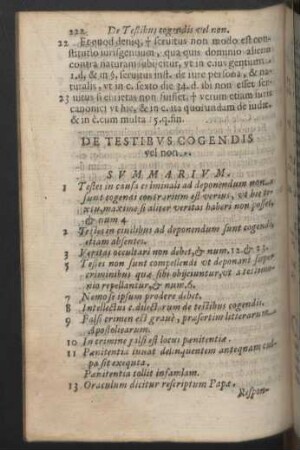 222 De Testibus cogendis vel non.
22 Et quod deniq; † seruitus non modo est con-
stitutio iurisgentium, qua quis dominio alieno
contra naturam subijcitur, vt in eius gentium
1. d. & in §. seruitus inst. de iure person. &
naturalis, vt in c. sexto die 34. d. ibi non esset ser-
23 uitus si ebrietas non fuisset. † verum etiam iuris
canonici vt hic, & in c. ita quorundam de iudæ.
& in c. cum multa 15. q. fin.
DE TESTIBVS COGENDIS
vel non.
SVMMARIVM.
1 Testes in causa criminali ad deponendum non
sunt cogendi contrarium est verius, vt hic
maxime si aliter veritas haberi non posset,
& num 4
2 Testes in ciuilibus ad deponendum sunt cogendi
etiam absentes.
3 Veritas occultari non debet, & num. 12. & 23.
5 Testes non sunt compellendi vt deponant super
criminibus quæ sibi obijciuntur, vt a testimo-
nio repellantur, & num. 6.
7 Nemo se ipsum prodere debet.
8 Intellectus c. dilectorum de testibus cogendis.
9 Falsi crimen est graue, præsertim litterarum
Apostolicarum.
10 In crimine falsi est locus pænitentiæ.
11 Pænitentia iuuat delinquentem antequam cul-
pa sit exequuta.
Pænitentia tollit infamiam.
13 Oraculum dicitur rescriptum Papæ.
Respon-